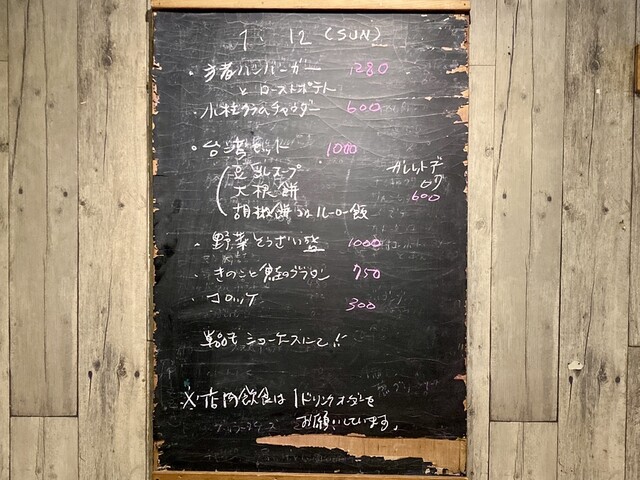 1 12 (SUN)
・ ハンバーガー 1280
と ローストポテト
・小柱クラムチャウダー 600
・台湾セット 1000
豆乳スープ
大根餅
胡椒餅 or ルーロー飯
ガレットデ
ロワ
600
・野菜そうざい盛 1000
・きのこと鮭のグラタン 750
・コロッケ 300
単品も ショーケースにて!!
※店内飲食は 1ドリンクオーダーを
お願いしています。